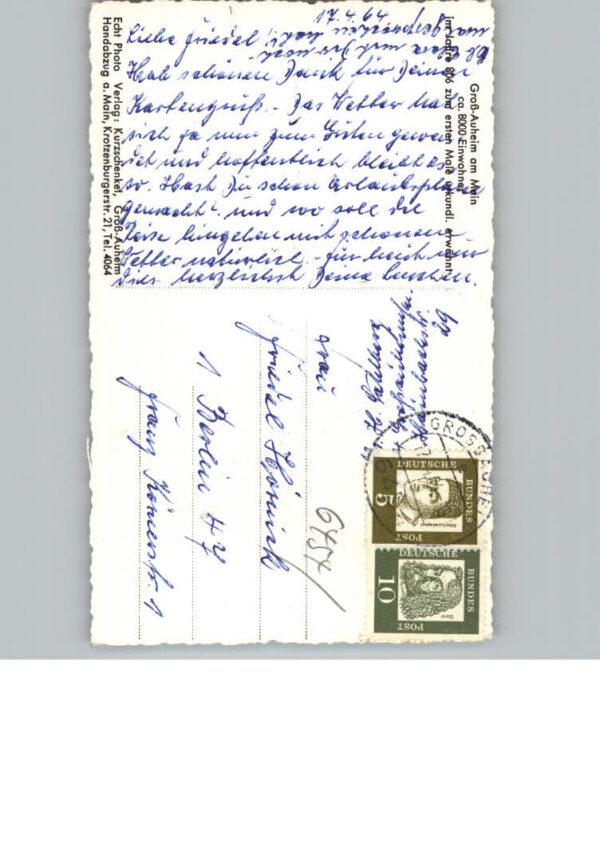 17.4.64
Liebe Friedel!
Hab schönen Dank für Deinen
Kartengruß. - Das Wetter ha
sich ja nun zum Guten gewen
det und hoffentlich bleibt es
so. Hast Du schon Urlaubspläne
gemacht? und wo soll die
Reise hingehen mit schönem
Wetter natürlich. - Für heut nun
Dir herzlichst Deine
Groß-Auheim am Main
ca. 8000-Einwohner
im Jahre 806 zum ersten Male urkundl. erwähnt
Echt Photo Verlag: Kurzschenkel, Groß-Auheim
Handabzug a. Main, Krotzenburgerstr. 21, Tel. 4064
Frau
Friedel
1 Berlin 47
Franz Körnerstr. 1
GROSSAUHEIM
DEUTSCHE
BUNDES
POST
5
DEUTSCHE
BUNDES
POST
10